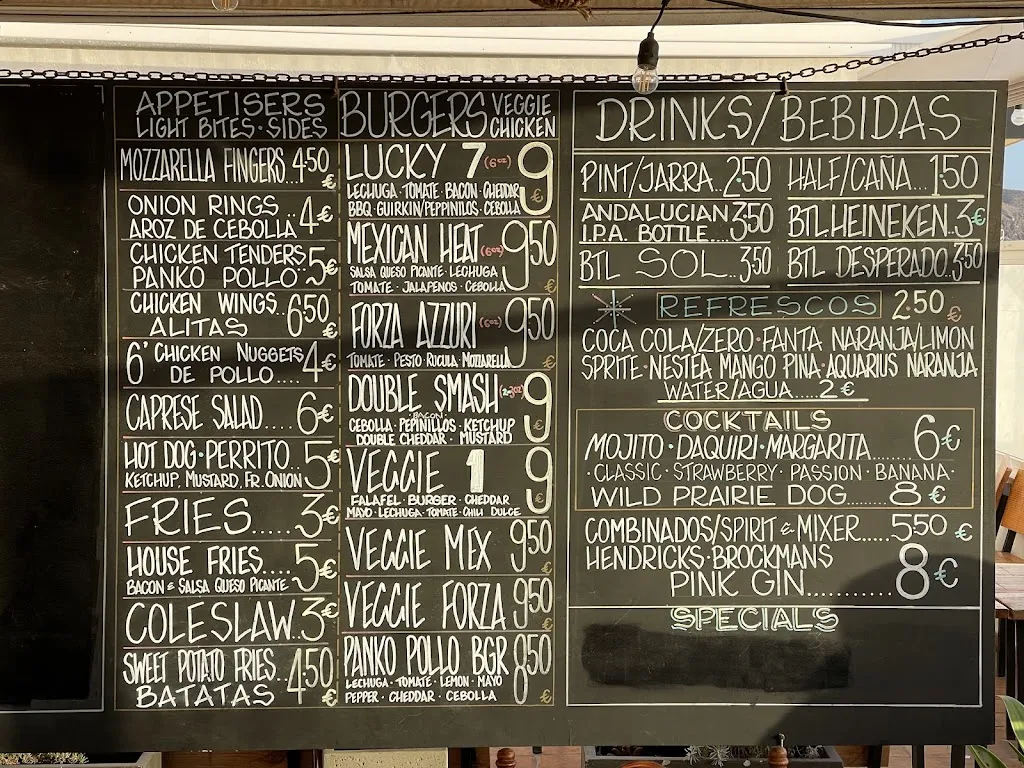 APPETISERS
LIGHT BITES·SIDES
MOZZARELLA FINGERS..4·50€
ONION RINGS..
AROZ DE CEBOLLA 4€
CHICKEN TENDERS
PANKO POLLO..5€
CHICKEN WINGS..
ALITAS 6·50€
6' CHICKEN NUGGETS
DE POLLO....4€
CAPRESE SALAD....6€
HOT DOG·PERRITO..5€
KETCHUP, MUSTARD, FR. ONION
FRIES....3€
HOUSE FRIES....5€
BACON & SALSA QUESO PICANTE
COLESLAW..3€
SWEET POTATO FRIES..
BATATAS 4·50€
BURGERS VEGGIE
CHICKEN
LUCKY 7 (6oz) 9€
LECHUGA·TOMATE·BACON·CHEDDAR
BBQ·GUIRKIN/PEPPINILOS·CEBOLLA
MEXICAN HEAT (6oz) 9·50€
SALSA QUESO PICANTE·LECHUGA
TOMATE·JALAPENOS·CEBOLLA
FORZA AZZURI (6oz) 9·50€
TOMATE·PESTO·RUCULA·MOZZARELLA
DOUBLE SMASH (2·3oz) 9
BACON
CEBOLLA·PEPINILLOS·KETCHUP
DOUBLE CHEDDAR·MUSTARD
VEGGIE 1 9€
FALAFEL·BURGER·CHEDDAR
MAYO·LECHUGA·TOMATE·CHILI DULCE
VEGGIE MEX 9·50€
VEGGIE FORZA 9·50€
PANKO POLLO BGR 8·50€
LECHUGA·TOMATE·LEMON·MAYO
PEPPER·CHEDDAR·CEBOLLA
DRINKS/BEBIDAS
PINT/JARRA..2·50 HALF/CAÑA...1·50
ANDALUCIAN
I.P.A. BOTTLE...3·50 BTL.HEINEKEN.3€
BTL SOL..3·50 BTL DESPERADO..3·50
REFRESCOS 2·50€
COCA COLA/ZERO·FANTA NARANJA/LIMON
SPRITE·NESTEA MANGO PINA·AQUARIUS NARANJA
WATER/AGUA.....2€
COCKTAILS
MOJITO·DAQUIRI·MARGARITA......6€
·CLASSIC·STRAWBERRY·PASSION·BANANA·
WILD PRAIRIE DOG......8€
COMBINADOS/SPIRIT & MIXER.....5·50€
HENDRICKS·BROCKMANS
PINK GIN..........8€
SPECIALS